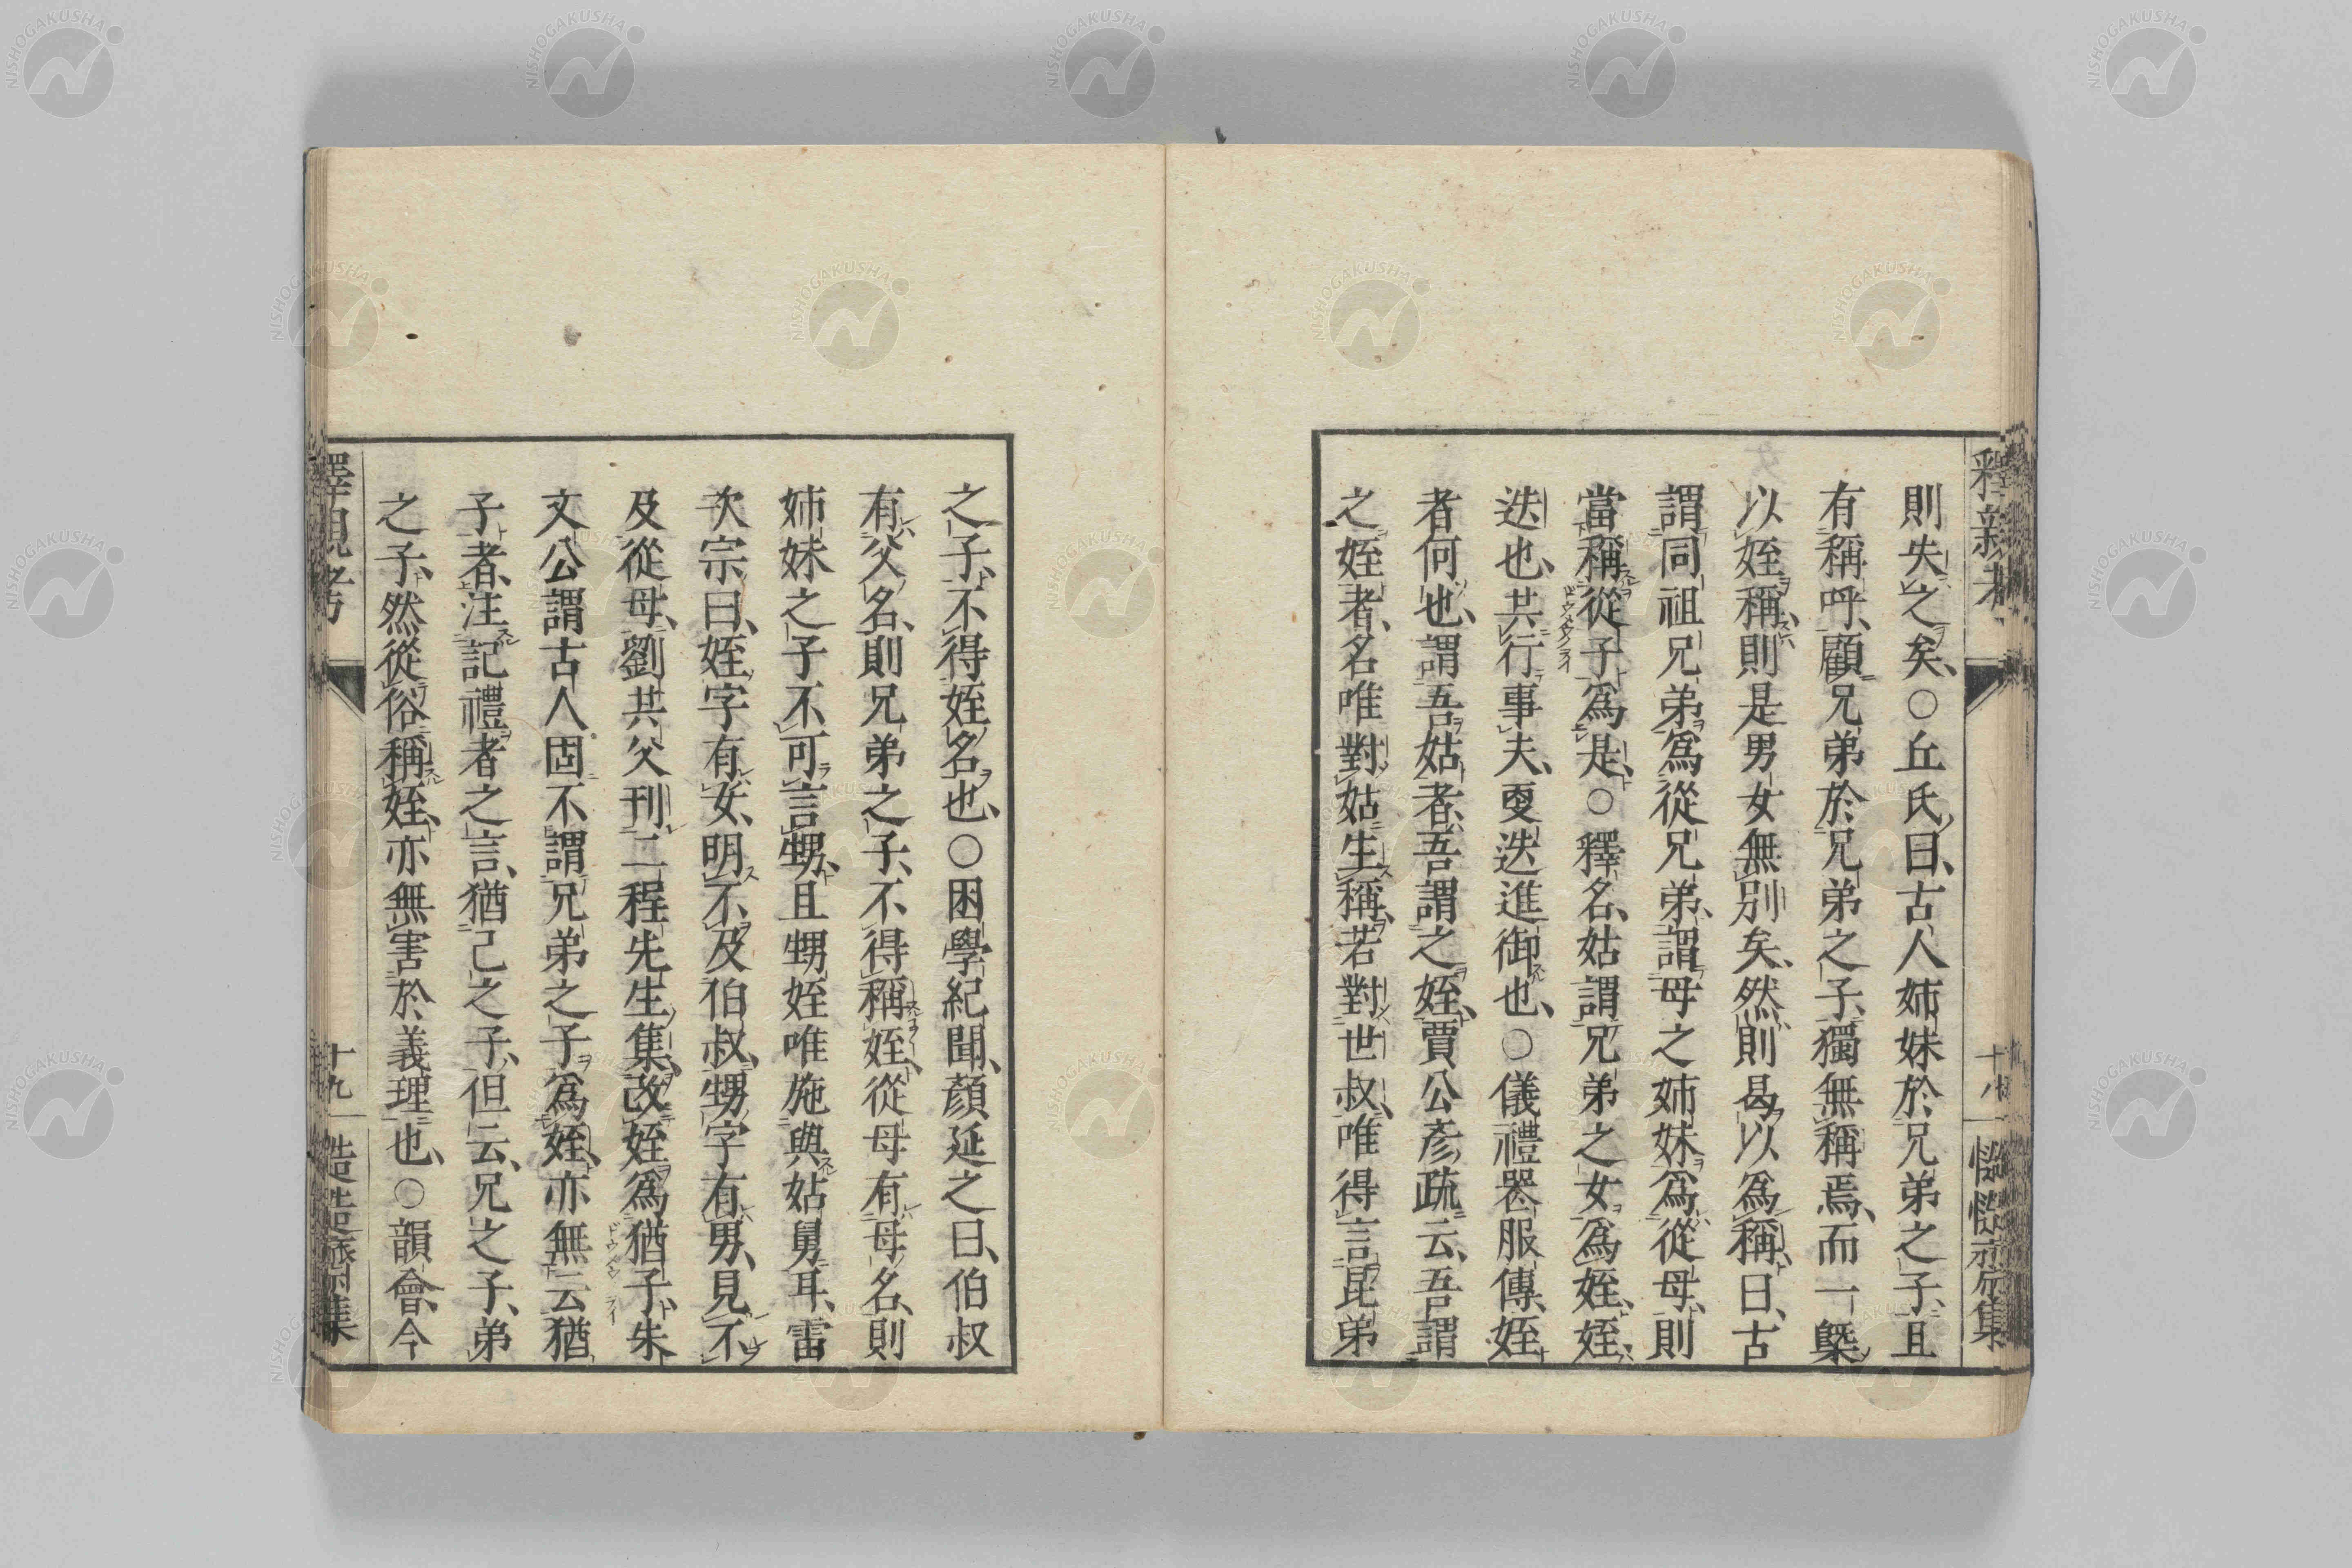 則失之矣、○丘氏曰、古人姉妹於兄弟之子、且
有稱呼、顧兄弟於兄弟之子、獨無稱焉、而一槩
以姪稱、則是男女無別矣、然則曷以爲稱、曰、古
謂同祖兄弟爲從兄弟、謂母之姉妹爲從母、則
當稱從子爲是、○釋名、姑謂兄弟之女爲姪、姪、
迭也、共行事夫、更迭進御也、○儀禮器服傳、姪
者何也、謂吾姑者、吾謂之姪、賈公彥疏云、吾謂
之姪者、名唯對姑生稱、若對世叔、唯得言昆弟
之子、不得姪名也、○困學紀聞、顏延之曰、伯叔
有父名、則兄弟之子、不得稱姪、從母有母名、則
姉妹之子不可言甥、且甥姪唯施與姑舅耳、雷
次宗曰、姪字有女、明不及伯叔、甥字有男、見不
及從母、劉共父刊二程先生集、改姪爲猶子、朱
文公謂古人固不謂兄弟之子爲姪、亦無云猶
子者、注記禮者之言、猶己之子、但云、兄之子、弟
之子、然從俗稱姪、亦無害於義理也、○韻會、今
釋親考
十九
NISHOGAKUSHA